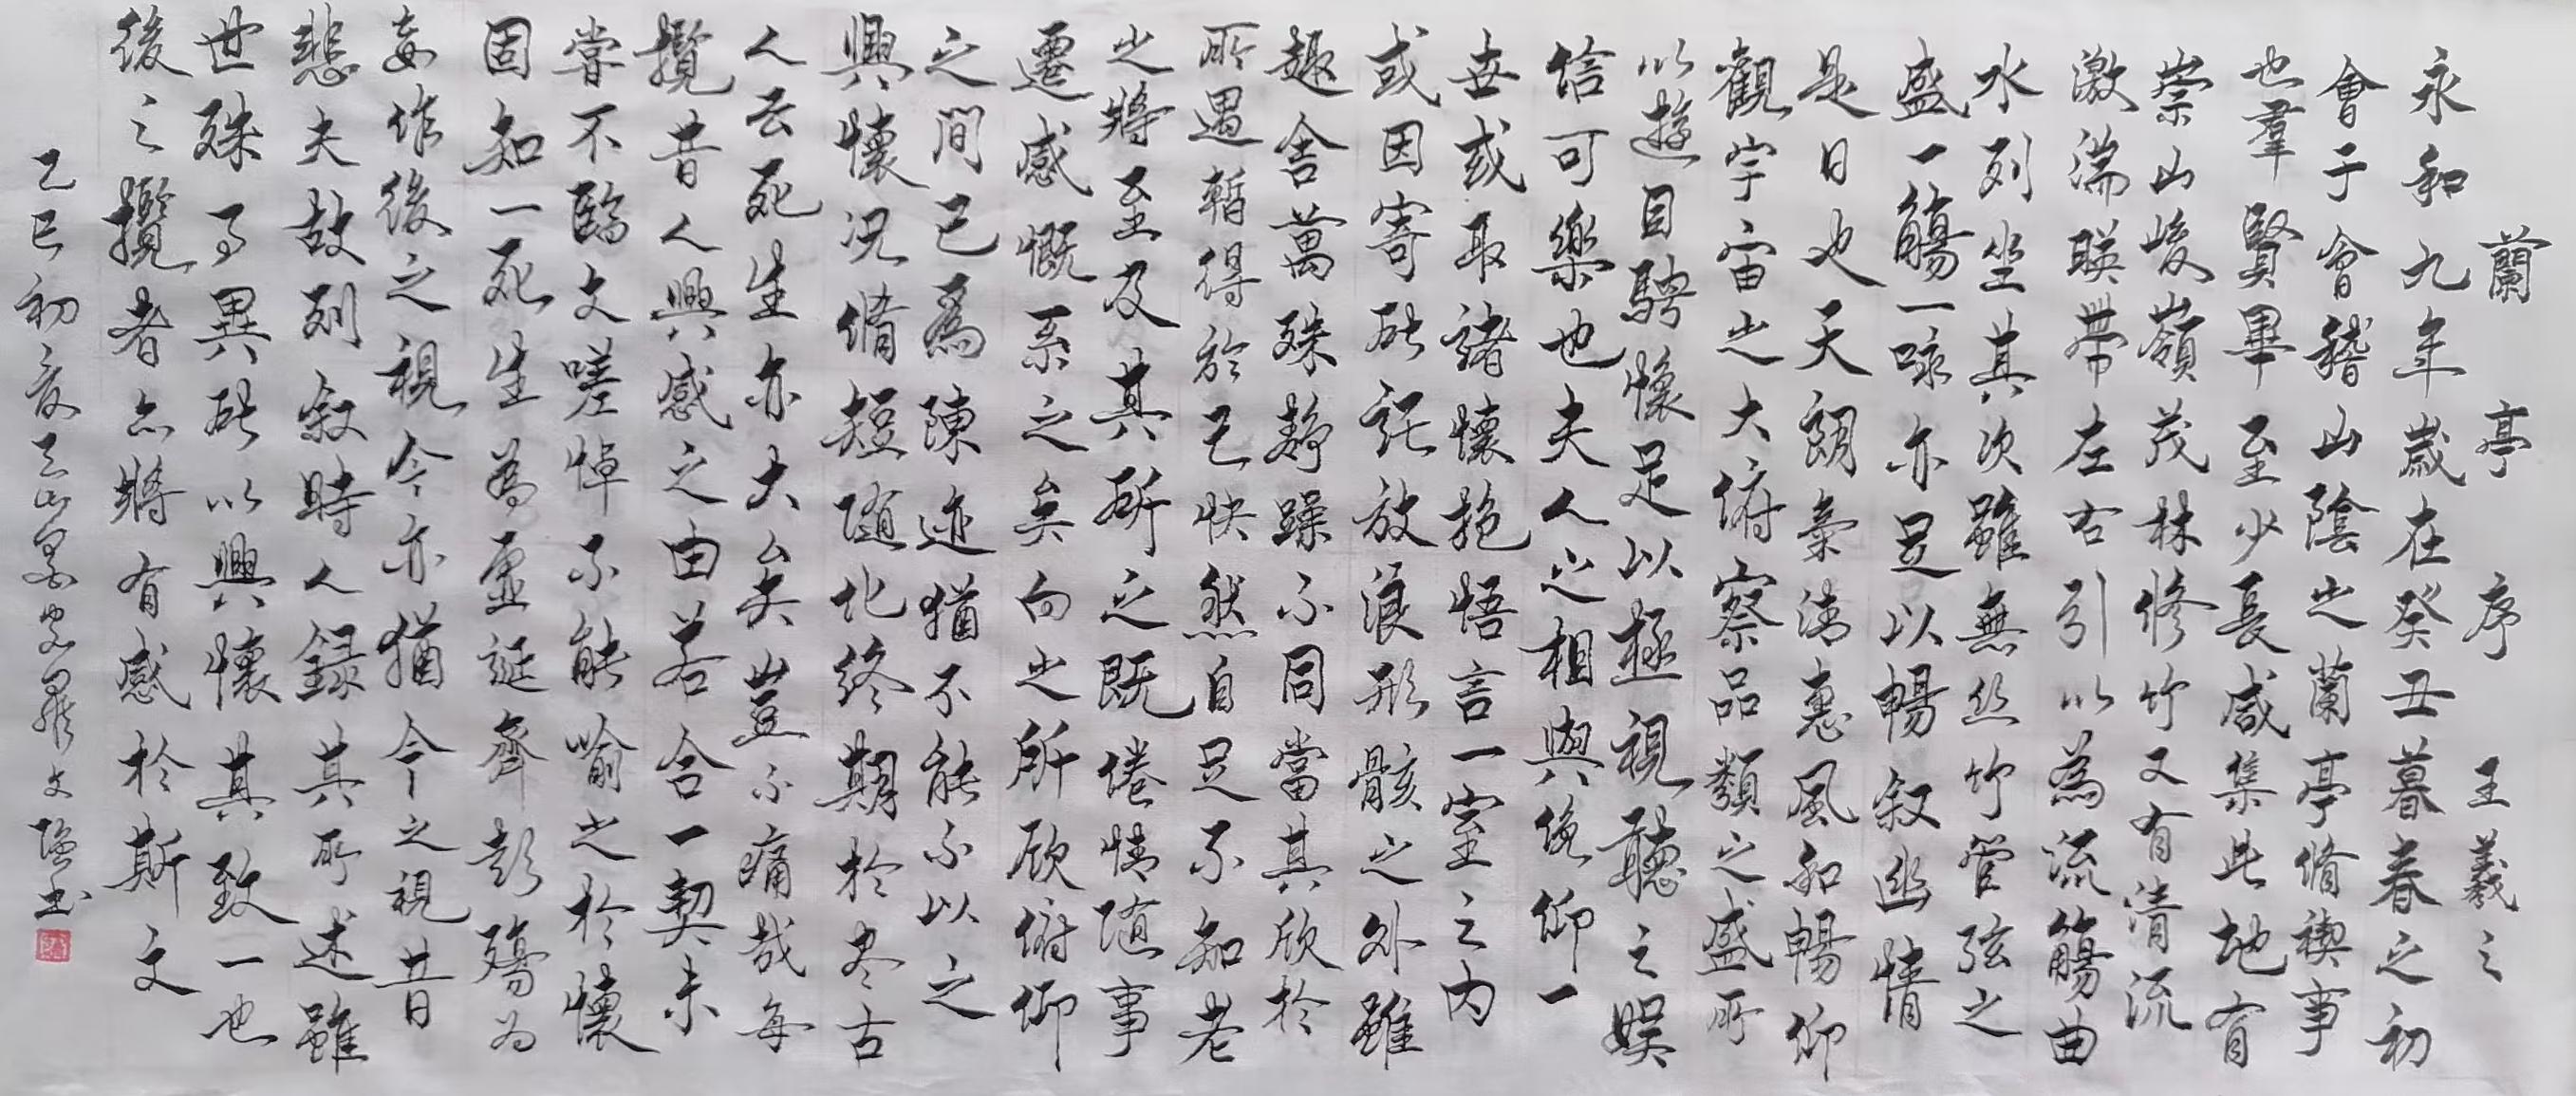 蘭亭序 王羲之
永和九年歲在癸丑暮春之初
會于會稽山陰之蘭亭脩禊事
也羣賢畢至少長咸集此地有
崇山峻嶺茂林修竹又有清流
激湍暎帶左右引以為流觴曲
水列坐其次雖無絲竹管弦之
盛一觴一咏亦足以暢叙幽情
是日也天朗氣清惠風和暢仰
觀宇宙之大俯察品類之盛所
以遊目騁懷足以極視聽之娛
信可樂也夫人之相與俛仰一
世或取諸懷抱悟言一室之內
或因寄所託放浪形骸之外雖
趣舍萬殊靜躁不同當其欣於
所遇暫得於己快然自足不知老
之將至及其所之既惓情隨事
遷感慨系之矣向之所欣俯仰
之間已為陳迹猶不能不以之
興懷況脩短隨化終期於盡古
人云死生亦大矣豈不痛哉每
攬昔人興感之由若合一契未
嘗不臨文嗟悼不能喻之於懷
固知一死生為虛誕齊彭殤为
妄作後之視今亦猶今之視昔
悲夫故列叙時人録其所述雖
世殊事異所以興懷其致一也
後之攬者亦將有感於斯文
乙巳初夏 文 書